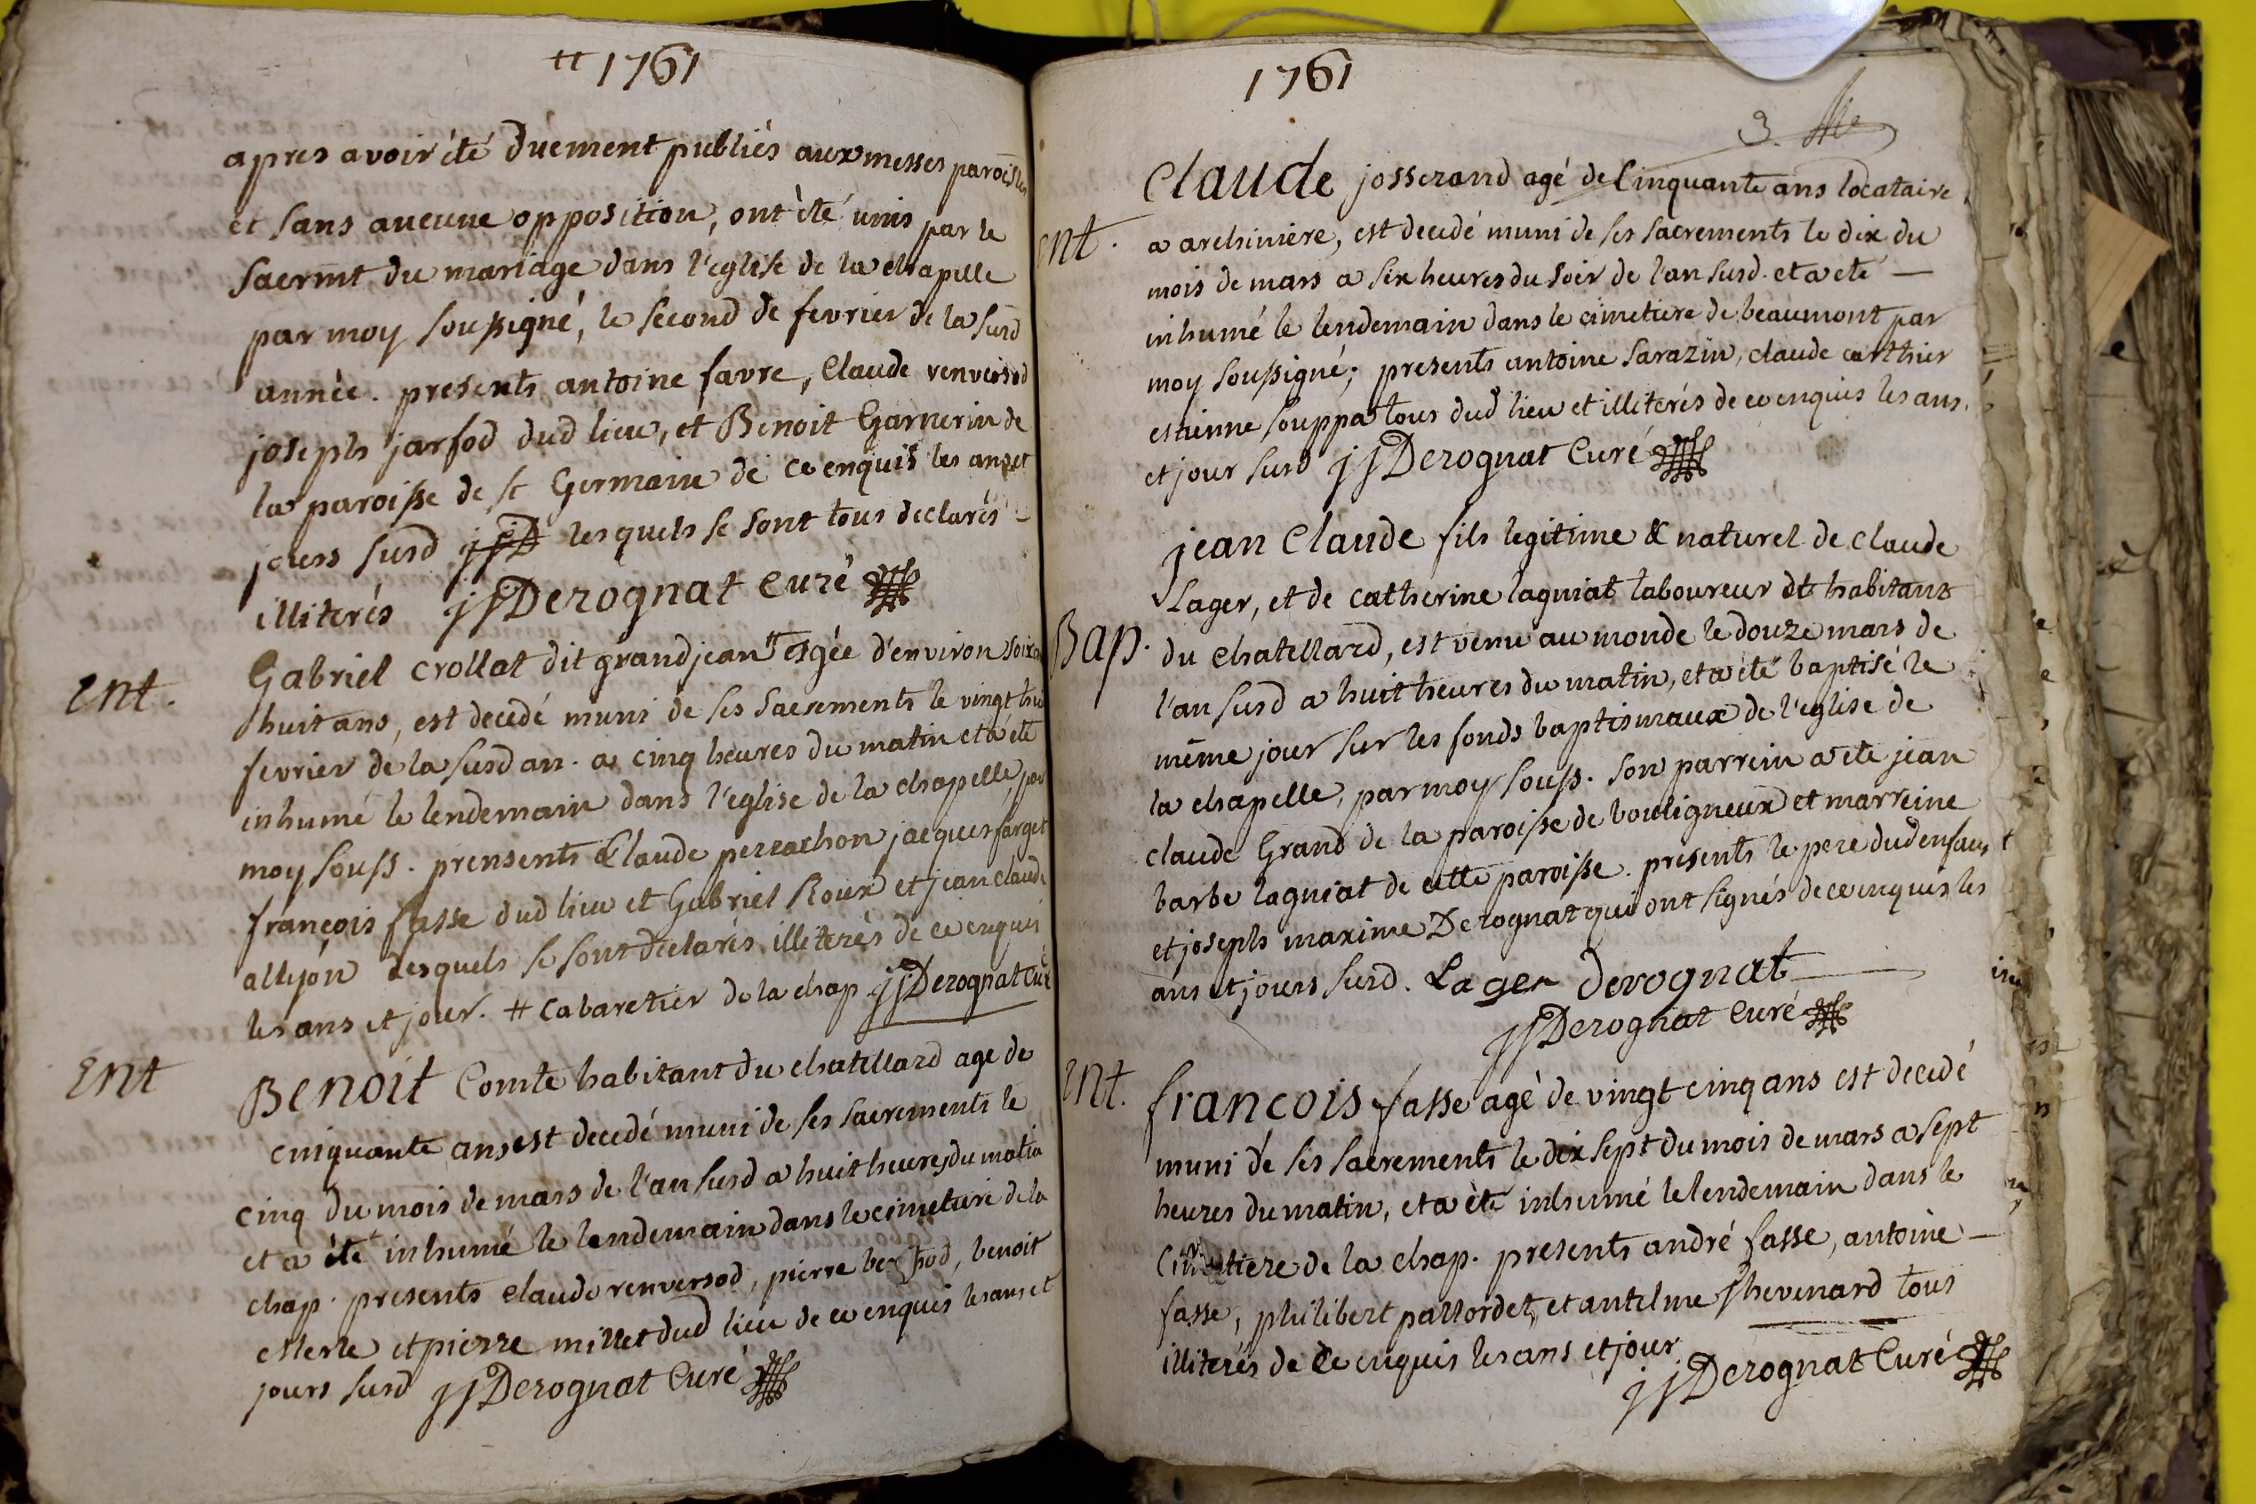 tt 1761
apres avoir été duement publiés aux messes
et sans aucune opposition, ont été unis par le
sacrmt du mariage dans l'eglise de la chapelle
par moy soussigné, le second de fevrier de la susd
année. presents antoine favre, Claude renversod
joseph jarfod dud lieu, et Benoit Garnerin de
la paroisse de st Germain de ce enquis les ans et
jours susd lesquels se sont tous declarés -
illiterés jjDerognat curé
Ent.
Gabriel crollat dit grandjean # agée d'environ
huit ans, est decedé muni de ses sacrements le vingt
fevrier de la susd an. a cinq heures du matin et a été
inhumé le lendemain dans l'eglise de la chapelle, par
moy souss. prensents Claude perrachon jacques farget
françois fasse dud lieu et Gabriel Roux et jean claude
allyon lesquels se sont declarés illiterés de ce enquis
les ans et jour. # cabaretier de la chap jjDerognat curé
Ent
Benoit Comte habitant du chatellard age de
cinquante ans est decedé muni de ses sacrements le
cinq du mois de mars de l'an susd a huit heures du matin
et a été inhumé le lendemain dans le cimetiere de la
chap. presents claude renversod, pierre benoit
merle et pierre millet dud lieu de ce enquis les ans et
jours susd jjDerognat Curé
1761
3.
Claude josserand agé de Cinquante ans locataire
Ent.
a archiniere, est decedé muni de ses sacrements le dix du
mois de mars a six heures du soir de l'an susd. et a eté —
inhumé le lendemain dans le cimetiere de beaumont par
moy soussigné; presents antoine Sarazin, claude carthier
estienne souppa tous dud lieu et illiterés de ce enquis les ans.
et jour susd jjDerognat Curé
jean Claude fils legitime & naturel de Claude
Lager, et de catherine lagniat laboureur dt habitant
Bap.
du chatellard, est venu au monde le douze mars de
l'an susd a huit heures du matin, et a été baptisé le
même jour sur les fonds baptismaux de l'eglise de
la chapelle, par moy souss. son parrein a ete jean
claude Grand de la paroisse de bouligneux et marreine
barbe lagniat de cette paroisse. presents le pere dud enfant
et joseph maxime Derognat qui ont signés de ce enquis les
ans et jours susd. Lager derognat
jjDerognat Curé
Ent.
françois fasse agé de vingt cinq ans est decedé
muni de ses sacrements le dix sept du mois de mars a sept
heures du matin, et a été inhumé le lendemain dans le
Cimetiere de la chap. presents andré fasse, antoine —
fasse, philibert pallordet, et antelme Thevenard tous
illiterés de ce enquis les ans et jour
jjDerognat Curé